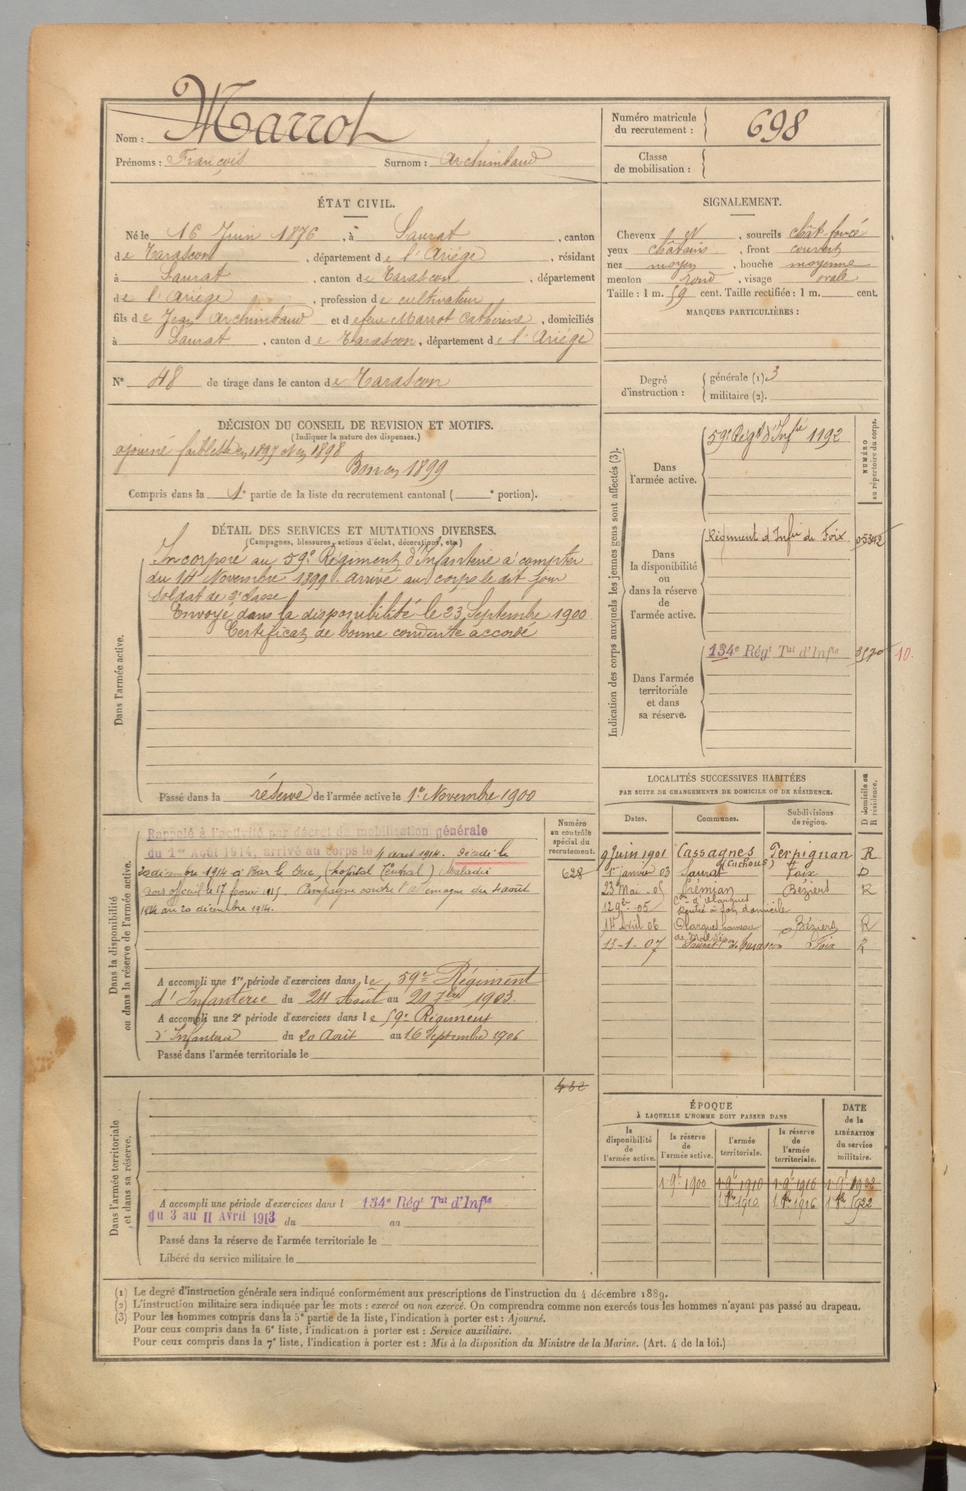 Nom : Marrot
Prénoms : François Surnom : Archimbaud
Numéro matricule
du recrutement : 698
Classe
de mobilisation :
ÉTAT CIVIL.
Né le 16 Juin 1876, à Saurat, canton
de Tarascon, département de l'Ariége, résidant
à Saurat, canton de Tarascon, département
de l'Ariége, profession de cultivateur
fils de Jean Archimbaud et de feue Marrot Catherine, domiciliés
à Saurat, canton de Tarascon, département de l'Ariége
N° 48 de tirage dans le canton de Tarascon
SIGNALEMENT.
Cheveux N, sourcils chât foncé
yeux châtains, front couvert
nez moyen, bouche moyenne
menton rond, visage ovale
Taille : 1 m. 59 cent. Taille rectifiée : 1 m. cent.
MARQUES PARTICULIÈRES :
Degré
d'instruction :
générale (1) 3
militaire (2).
DÉCISION DU CONSEIL DE REVISION ET MOTIFS.
(Indiquer la nature des dispenses.)
ajourné faiblesse en 1897 et en 1898
Bon en 1899
Compris dans la 1e partie de la liste du recrutement cantonal ( e portion).
DÉTAIL DES SERVICES ET MUTATIONS DIVERSES.
(Campagnes, blessures, actions d'éclat, décorations, etc.)
Dans l'armée active.
Incorporé au 59e Régiment d'Infanterie à compter
du 14 Novembre 1899. arrivé au corps le dit jour
Soldat de 2e classe
Envoyé dans la disponibilité le 23 Septembre 1900
Certificat de bonne conduite accordé
Passé dans la réserve de l'armée active le 1er Novembre 1900
Indication des corps auxquels les jeunes gens sont affectés (3).
NUMÉRO
au répertoire du corps.
Dans
l'armée active.
59e Régt d'Infie 1192
Dans
la disponibilité
ou
dans la réserve
de
l'armée active.
Régiment d'Infie de Foix 05302
Dans l'armée
territoriale
et dans
sa réserve.
134e Régt Tal d'Infie 3570 10.
LOCALITÉS SUCCESSIVES HABITÉES
PAR SUITE DE CHANGEMENTS DE DOMICILE OU DE RÉSIDENCE.
Dates. Communes. Subdivisions
de région. D domicile ou
R résidence.
9 Juin 1901 Cassagnes Perpignan R
1er janvier 03 Saurat Foix D
23 Mai - 05 Prémian Béziers R
12 9bre - 05
14 Avril 06 Béziers R
13-1-07 Saurat Foix R
Dans la disponibilité
ou dans la réserve de l'armée active.
Numéro
au contrôle
spécial du
recrutement.
628
Rappelé à l'activité par décret de mobilisation générale
du 1er Août 1914, arrivé au corps le 4 août 1914. Décédé le
20 décembre 1914 à Bar le Duc, (hôpital Central) Maladie
Campagne contre l'Allemagne du 4 août
1914 au 20 décembre 1914.
A accompli une 1re période d'exercices dans le 59e Régiment
d'Infanterie du 24 Août au 20 7bre 1903.
A accompli une 2e période d'exercices dans le 59e Régiment
d'Infanterie du 20 Août au 16 Septembre 1906
Passé dans l'armée territoriale le
Dans l'armée territoriale
et dans sa réserve.
A accompli une période d'exercices dans l 134e Régt Tal d'Infie
du 3 au 11 Avril 1913 du au
Passé dans la réserve de l'armée territoriale le
Libéré du service militaire le
ÉPOQUE
À LAQUELLE L'HOMME DOIT PASSER DANS
DATE
de la
LIBÉRATION
du service
militaire.
la
disponibilité
de
l'armée active.
la réserve
de
l'armée active.
l'armée
territoriale.
la réserve
de
l'armée
territoriale.
1 9b 1900 1 9b 1910 1 9b 1916 1 9b 1922
1 8bre 1910 1 8bre 1916 1 8bre 1922
(1) Le degré d'instruction générale sera indiqué conformément aux prescriptions de l'instruction du 4 décembre 1889.
(2) L'instruction militaire sera indiquée par les mots : exercé ou non exercé. On comprendra comme non exercés tous les hommes n'ayant pas passé au drapeau.
(3) Pour les hommes compris dans la 5e partie de la liste, l'indication à porter est : Ajourné.
Pour ceux compris dans la 6e liste, l'indication à porter est : Service auxiliaire.
Pour ceux compris dans la 7e liste, l'indication à porter est : Mis à la disposition du Ministre de la Marine. (Art. 4 de la loi.)